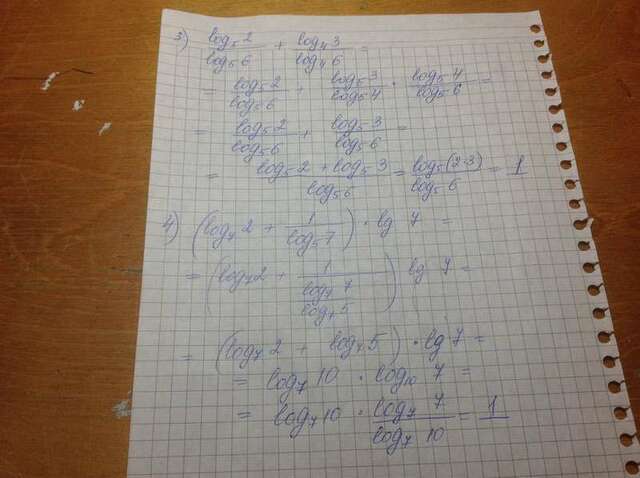 3) \frac{log₅2}{log₅6} + \frac{log₄3}{log₄6} =
= \frac{log₅2}{log₅6} + \frac{log₅3}{log₅4} · \frac{log₅4}{log₅6} =
= \frac{log₅2}{log₅6} + \frac{log₅3}{log₅6} =
= \frac{log₅2 + log₅3}{log₅6} = \frac{log₅(2·3)}{log₅6} = 1
4) (log₇2 + \frac{1}{log₅7}) · lg 7 =
= (log₇2 + \frac{1}{\frac{log₇7}{log₇5}}) lg 7 =
= (log₇2 + log₇5) · lg 7 =
= log₇10 · log₁₀7 =
= log₇10 · \frac{log₇7}{log₇10} = 1